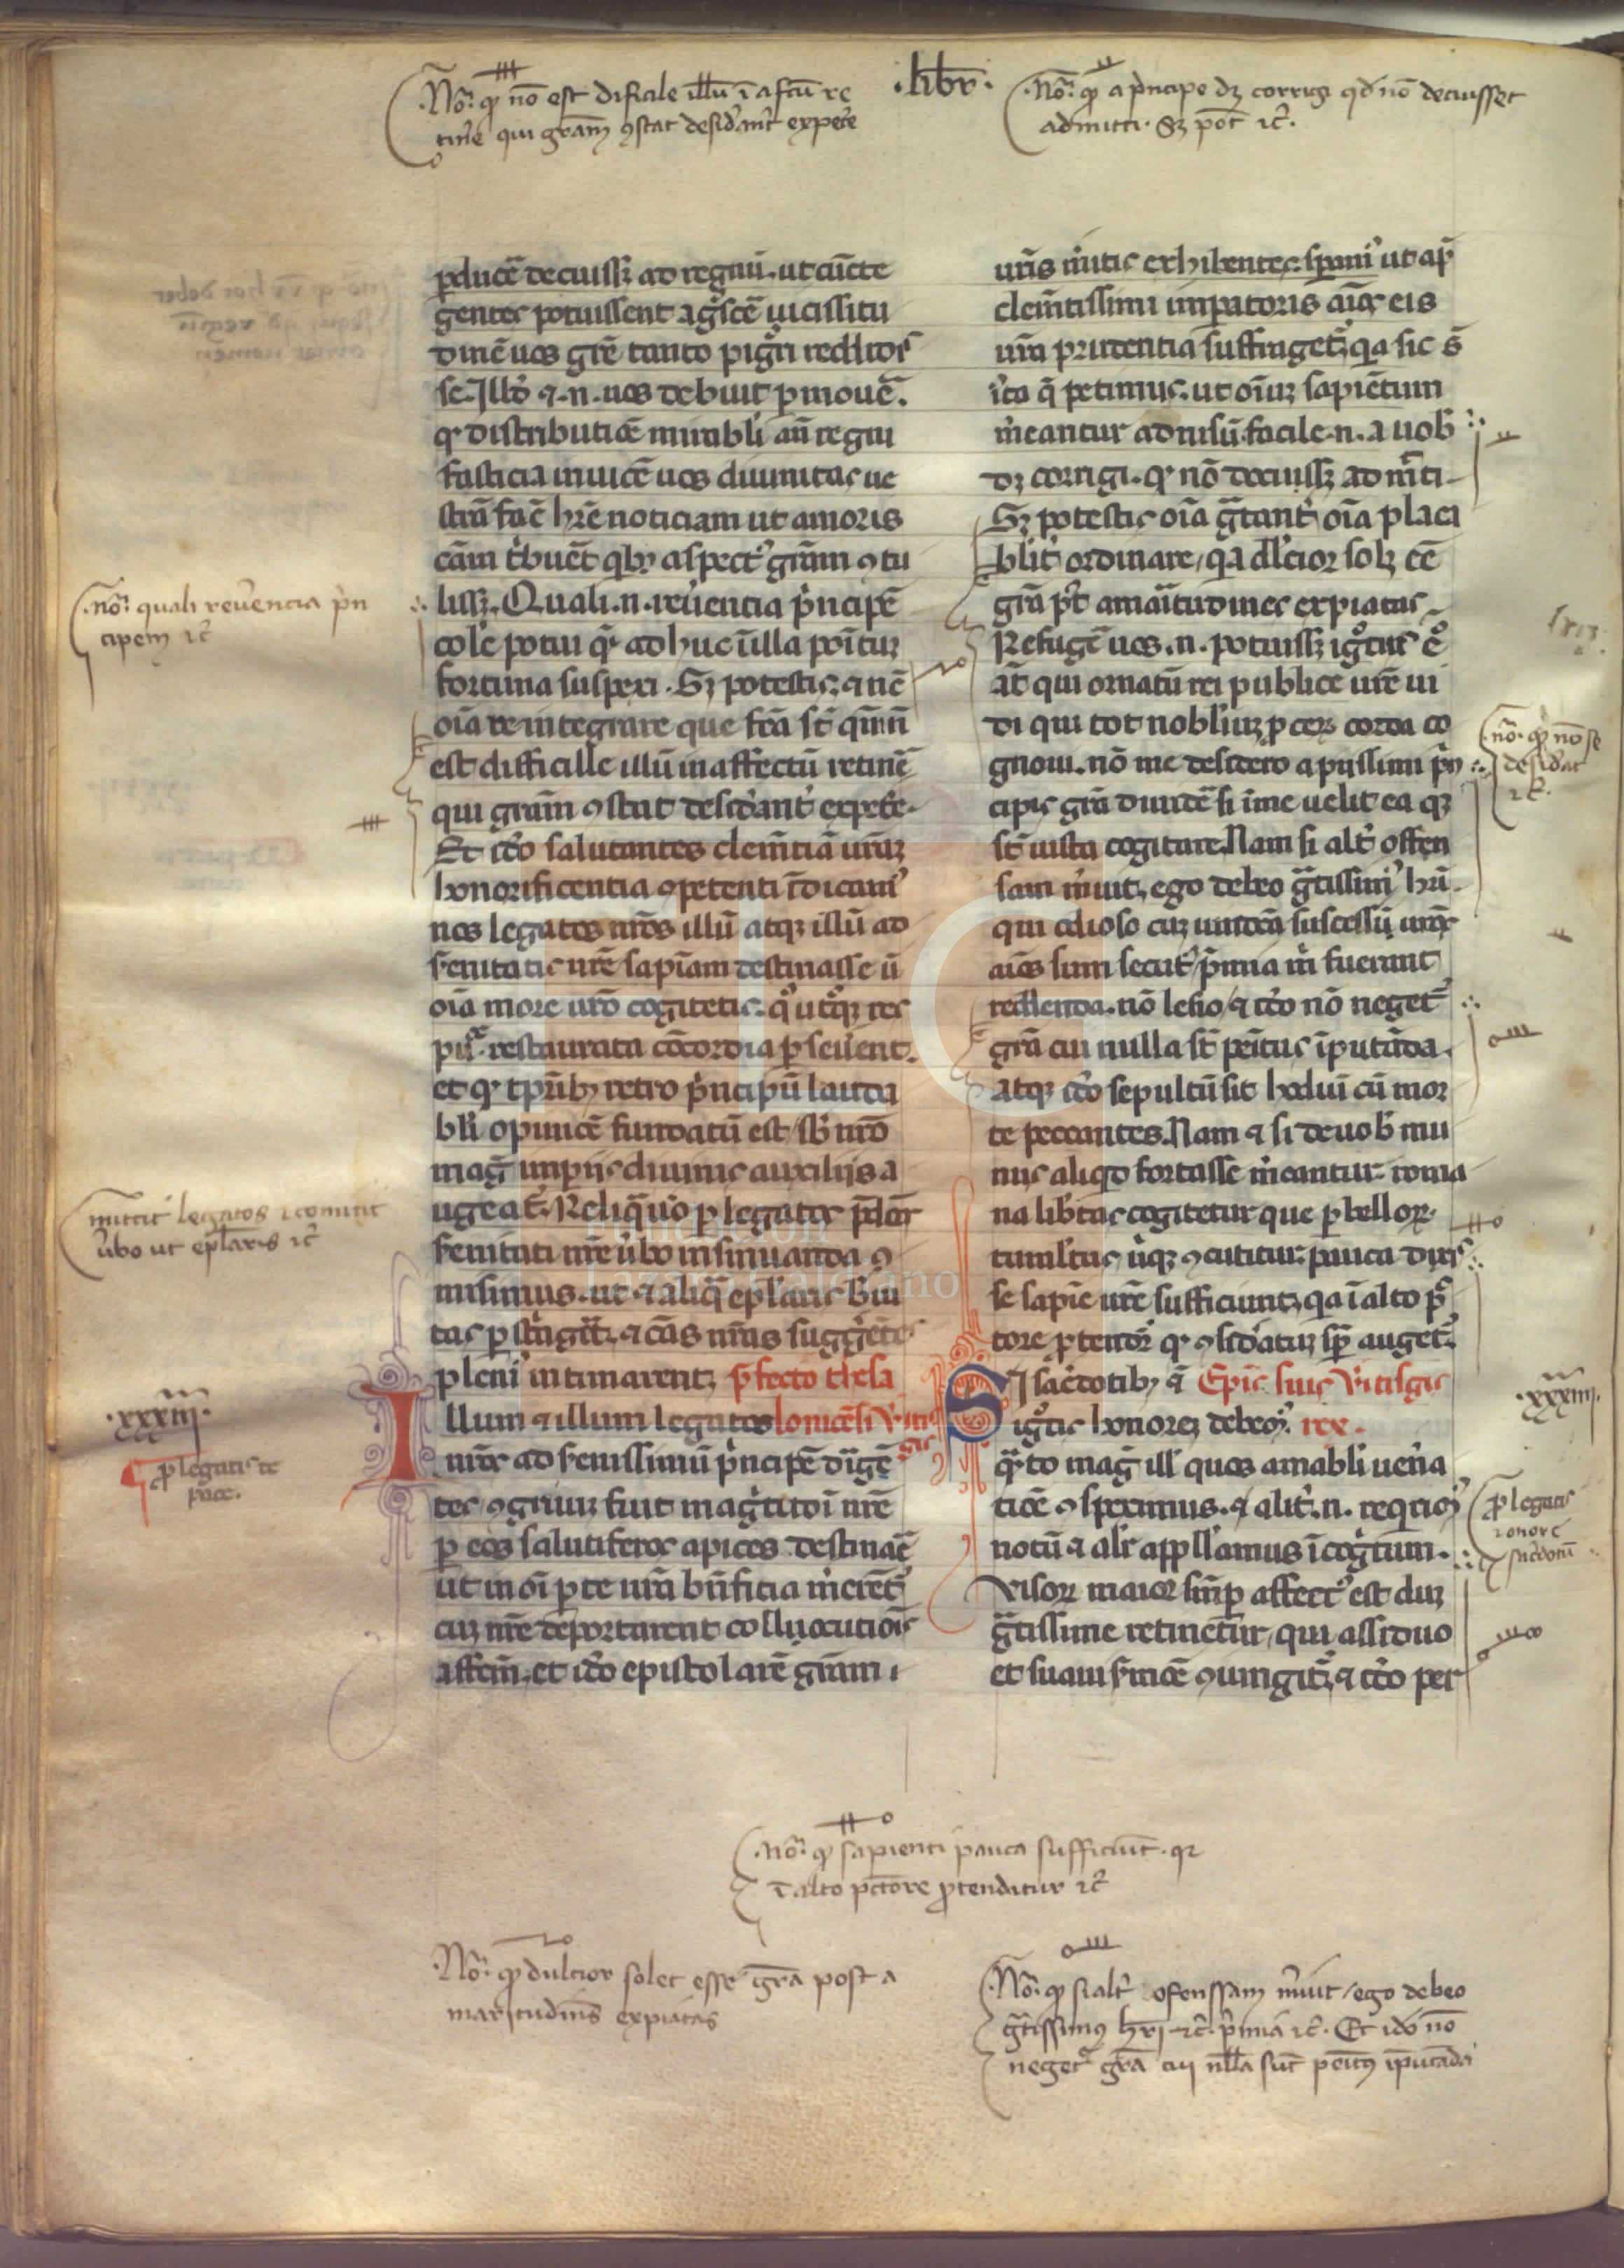 ·libr·
.No. qr non est dificile illu i afctu re
tine qui gram ꝯstat desidant expete
.No. qr a pncipe dz corrigi qd no decuisset
admitti. sz pot ⁊c.
pducē decuissz ad regnū. ut cuncte
gentes potuissent agscē uicissitu
dinē uos grē tanto pigri reddidis
se. Illd ⁊.n. uos debuit pmouē.
qr distributiōe mirabli an regni
fastigia inuicē uos diuinitas ue
strā fac hrē noticiam ut amoris
cām tbuet qby aspectꝯ gram ꝯtu
lissz. Quali.n. reuencia pncipē
colē potui qr adhuc ī illa poitus
fortuna suspexi. Sz potestis, ⁊ nc
oīa reintegrare que fca st qmn
est difficille illū in affectū retinē
qui gram ꝯstat desidant expete.
Et ido salutantes clemtiā uram
honorificentia ꝯpetenti īdicamꝯ
nos legatos nros illū atqz illū ad
senitatis ure sapiam destinasse ut
oīa more uro cogitetis. qutqz res
pu. restaurata cocordia pseuent.
et qr tpribꝫ retro pncipū lauda
bli opinioē fundatū est sb nro
mag impiis diuinis auxiliis a
ugeat. Reliqa uo p legatos pdcos
senitati ure ubo insinuanda ꝯ
misimus. ut ⁊ aliq eplaris breui
tas pstringit. ⁊ cas nras suggerētes
pleniꝯ intimarent. pfecto thesa
Illum ⁊ illum legatos lonicesi Viti
gis
nros ad senissimū pncipē dirigē
tes ꝯgruuz fuit magitudī ure
p eos salutiferos apices destinarē
ut in oī pte ura bnficia mererēt
cuz ure deportarent colluocutiōis
affem. et ido epistolarē gram i
uris mitis exhibentes. spamꝯ ut apd
clemtissimi impatoris aīos eis
ura prudentia suffragetz. qa sic st
ita q petimus. ut oium sapiētum
meantur adnisū. facile.n. a uob
dz corrigi. qr nō decuissz admitti.
Sz potestis oīa gtant oīa placi
blit ordinare, qa dlcior solz ēē
gra pt amaritudines expiatas.
Refugē uos.n. potuissz igtus eo
at qui ornatū rei publice ure ui
di qui tot nobliuz pcerz corda co
gnoui. nō me desidero a piissimi prin
cipis gra diuidē si ī me uelit ea qz
st iusta cogitare. Nam si alt offen
sam muit, ego debeo gtissimꝯ hri.
qui odioso cuz uindcā suscessū uros
aīos sum secutꝯ pmia m fuerant
reddenda. nō lesio, ⁊ ido nō neget
gra cui nulla st penitus īputāda.
atqz ido sepultū sit hodiuī cū mor
te peccantes. Nam ⁊ si de uob mi
nus aliqd fortasse meantur. roma
na libtas cogitetur que p bellorz
tumltus uiqz ꝯcutitur. pauca dixis
se sapie ure sufficiunt, qa ī alto pec
tore ptendit qr ꝯsidatuz sp auget.
Si sacdotibꝫ a Epis suis Vitisgis
igtis honorez debemꝯ. rex.
qto mag ill quos amabli uenia
tiōe ꝯspeximus. ⁊ alit.n. reqrimꝯ
notū ⁊ alit appllamus īcogitum.
Visorz maior semp affectꝯ est duz
gtissime retinentur, qui assiduo
et suaui smōe ꝯiungitz, ⁊ ido per
.no. quali reuencia prin
cipem ⁊c
mittit legatos ⁊ comittit
ubo ut eplaris ⁊c
.xxxiii.
p legatis de
pace.
.no. qr no se
desidat
⁊c.
.xxxiiii.
p legatis
⁊ onore
sacdotū
.No. qr sapienti pauca sufficiut. qr
ī alto pctore ptenditur ⁊c
.No. qr dulcior solet esse gra post a
maritudinis expiatas
.No. qr si alt ofenssam muit / ego debeo
gtissimꝯ hri ⁊c. pmia ⁊c. Et ido no
neget gra cui nlla sut penitꝯ iputada